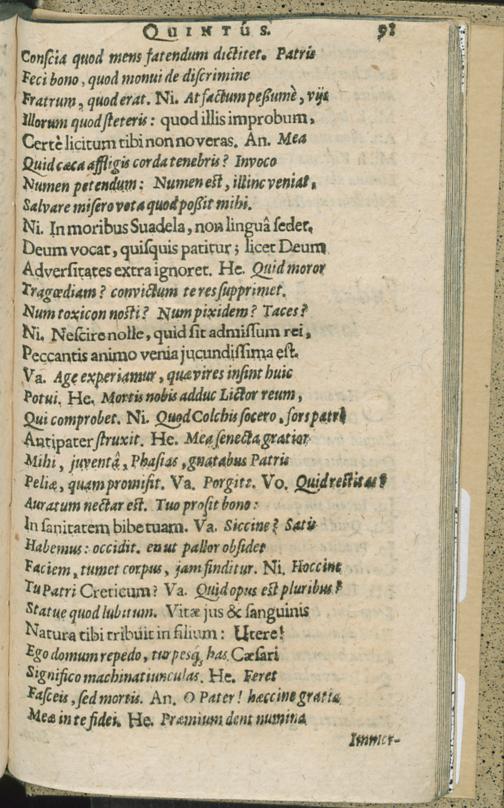 QUINTÚS. 98
Conscia quod mens fatendum dictitet. Patris
Feci bono, quod monui de discrimine
Fratrum, quod erat. Ni. At factum peßumè, vijs
Illorum quod steteris: quod illis improbum,
Certè licitum tibi non noveras. An. Mea
Quid cæca affligis corda tenebris? Invoco
Numen petendum: Numen est, illinc veniat,
Salvare misero vota quod poßit mihi.
Ni. In moribus Suadela, non linguâ sedet.
Deum vocat, quisquis patitur; licet Deum
Adversitates extra ignoret. He. Quid moror
Tragœdiam? convictum te res supprimet.
Num toxicon nosti? Num pixidem? Taces?
Ni. Nescire nolle, quid sit admissum rei,
Peccantis animo venia jucundissima est.
Va. Age experiamur, quæ vires insint huic
Potui. He. Mortis nobis adduc Lictor reum,
Qui comprobet. Ni. Quod Colchis socero, fors patri
Antipater struxit. He. Mea senecta gratior
Mihi, juventâ, Phasias, gnatabus Patris
Peliæ, quam promisit. Va. Porgite. Vo. Quid restitas?
Auratum nectar est. Tuo prosit bono:
In sanitatem bibe tuam. Va. Siccine? Satis
Habemus: occidit. en ut pallor obsidet
Faciem, tumet corpus, jam finditur. Ni. Hoccine
Tu Patri Creticum? Va. Quid opus est pluribus?
Statue quod lubitum. Vitæ jus & sanguinis
Natura tibi tribuit in filium: Utere!
Ego domum repedo, turpesq; has Cæsari
Significo machinatiunculas. He. Feret
Fasceis, sed mortis. An. O Pater! hæccine gratia
Meæ in te fidei. He. Præmium dent numina
Immer-